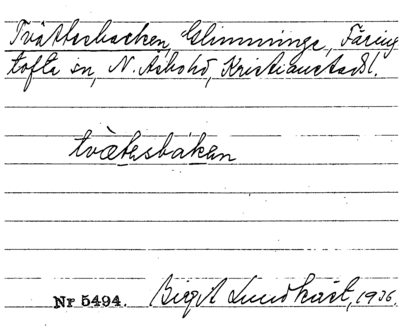 Tvättesbacken, Glimminge, Färing
tofta sn, N. Åsbohd, Kristianstadsl.
tvætesbakan
Nr 5494. Birgit Lundkvist, 1936.